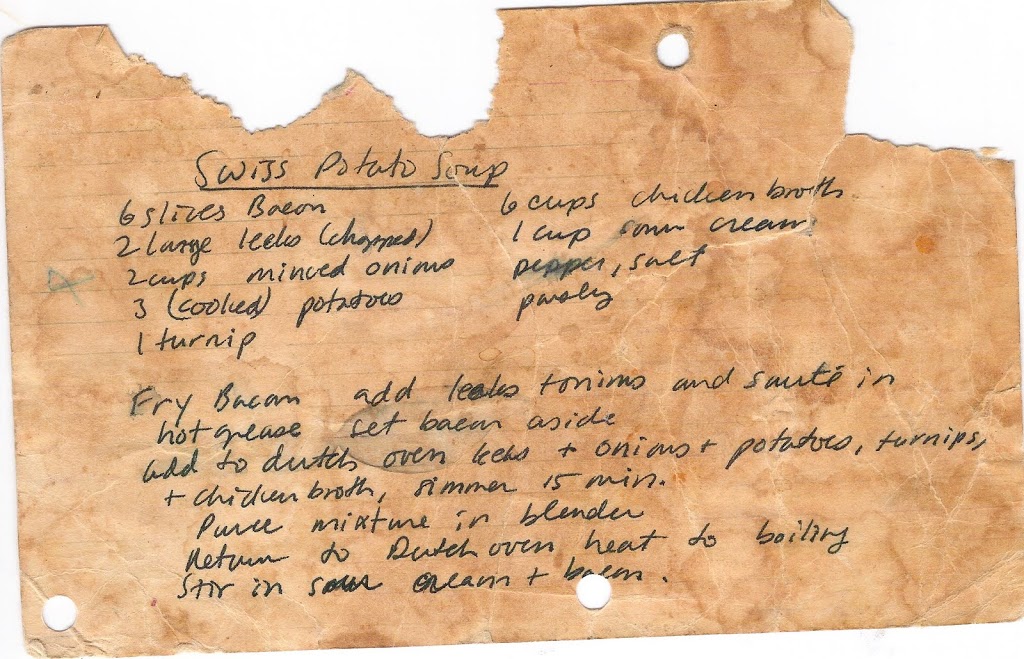 Swiss Potato Soup
6 slices Bacon
2 large leeks (chopped)
2 cups minced onions
3 (cooked) potatoes
1 turnip
6 cups chicken broth
1 cup sour cream
pepper, salt
parsley
Fry Bacon add leeks + onions and sauté in
hot grease set bacon aside
add to dutch oven leeks + onions + potatoes, turnips,
+ chicken broth, simmer 15 min.
Puree mixture in blender
Return to Dutch oven heat to boiling
Stir in sour cream + bacon.